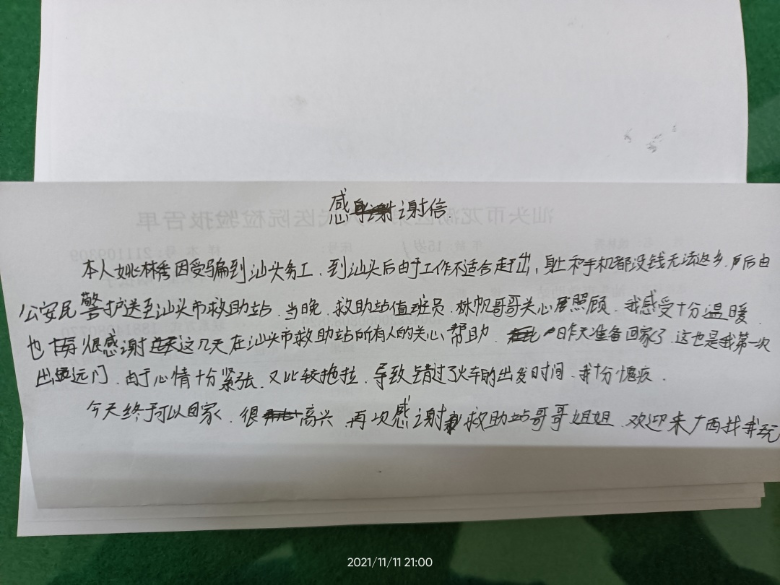 感谢信
本人姚林秀因受骗到汕头务工，到汕头后由于工作不适合赶出，身上和手机都没钱无法返乡，后由
公安民警护送至汕头市救助站，当晚，救助站值班员，林帆哥哥关心照顾，我感受十分温暖
也很感谢这几天在汕头市救助站所有人的关心帮助，昨天准备回家了，这也是我第一次
出远门，由于心情十分紧张，又比较拖拉，导致错过了火车的出发时间，我十分愧疚，
今天终于可以回家，很高兴，再次感谢救助站哥哥姐姐，欢迎来广西找我玩
2021/11/11 21:00